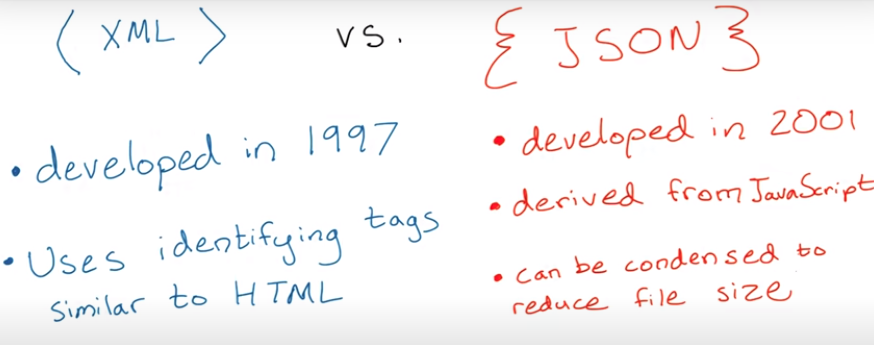 < XML > vs. { JSON }
• developed in 1997
• Uses identifying tags
similar to HTML
• developed in 2001
• derived from JavaScript
• can be condensed to
reduce file size